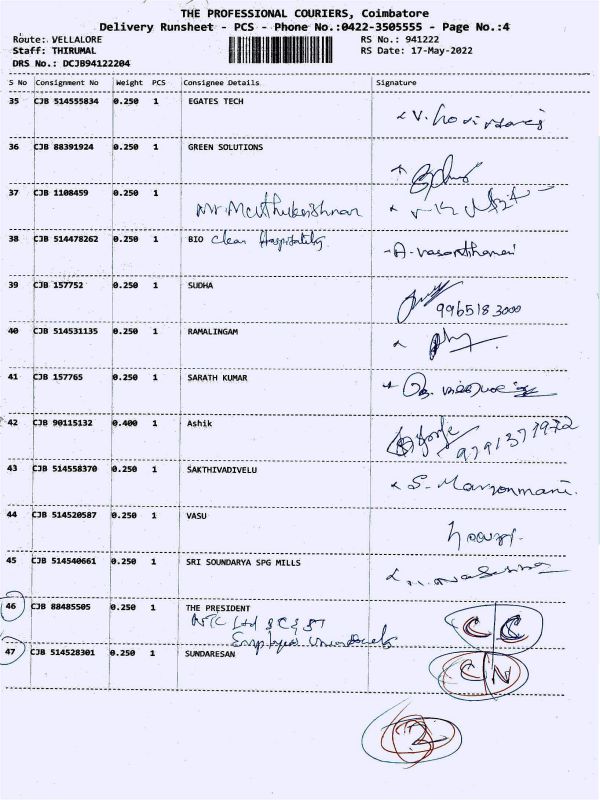 THE PROFESSIONAL COURIERS, Coimbatore
Delivery Runsheet - PCS - Phone No.:0422-3505555 - Page No.:4
Route: VELLALORE RS No.: 941222
Staff: THIRUMAL RS Date: 17-May-2022
DRS No.: DCJB94122204
S No Consignment No Weight PCS Consignee Details Signature
35 CJB 514555834 0.250 1 EGATES TECH
36 CJB 88391924 0.250 1 GREEN SOLUTIONS
37 CJB 1108459 0.250 1
Mr. Muthukrishnan
38 CJB 514478262 0.250 1 BIO Clean Hospitality A. Vasanthamani
39 CJB 157752 0.250 1 SUDHA
9965183000
40 CJB 514531135 0.250 1 RAMALINGAM
41 CJB 157765 0.250 1 SARATH KUMAR
42 CJB 90115132 0.400 1 Ashik
9791371972
43 CJB 514558370 0.250 1 SAKTHIVADIVELU
S. Manonmani.
44 CJB 514520587 0.250 1 VASU
45 CJB 514540661 0.250 1 SRI SOUNDARYA SPG MILLS
46 CJB 88485505 0.250 1 THE PRESIDENT
NTC Ltd SC & ST C C
Employees
47 CJB 514528301 0.250 1 SUNDARESAN
C N
2